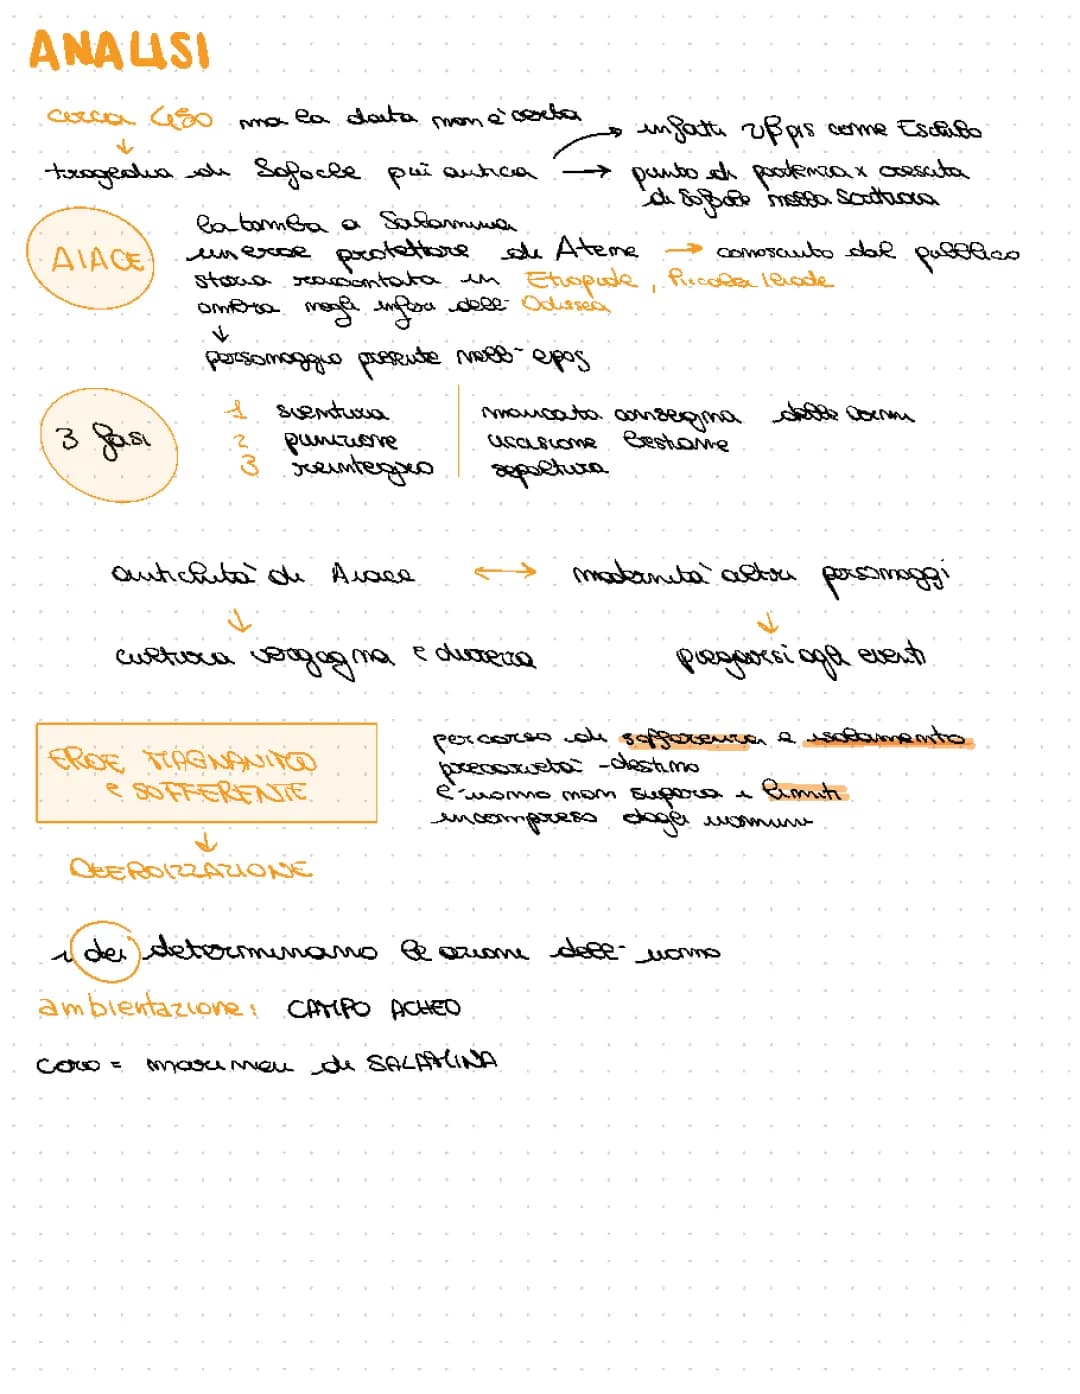 ANALISI
circa 450 ma la data non è certa
→ infatti ύβρις come Eschilo
↓
tragedia di Sofocle più antica → punto di partenza x crescita
di Sofocle nella scrittura
AIACE
ha tomba a Salamina
un eroe protettore di Atene → conosciuto dal pubblico
storia raccontata in Etiopide, Piccola Iliade
ombra negli inferi dell'Odissea
↓
personaggio presente nell'epos
3 fasi
1 sventura | mancata consegna delle armi
2 punizione | uccisione bestiame
3 reintegro | sepoltura
antichità di Aiace ↔ modernità altri personaggi
↓ ↓
cultura vergogna e durezza piegarsi agli eventi
EROE MAGNANIMO
e SOFFERENTE
percorso di sofferenza e isolamento
precarietà - destino
l'uomo non supera i limiti
incompreso dagli uomini
↓
DEEROIZZAZIONE
i dei determinano le azioni dell'uomo
ambientazione: CAMPO ACHEO
coro = marinai di SALAMINA